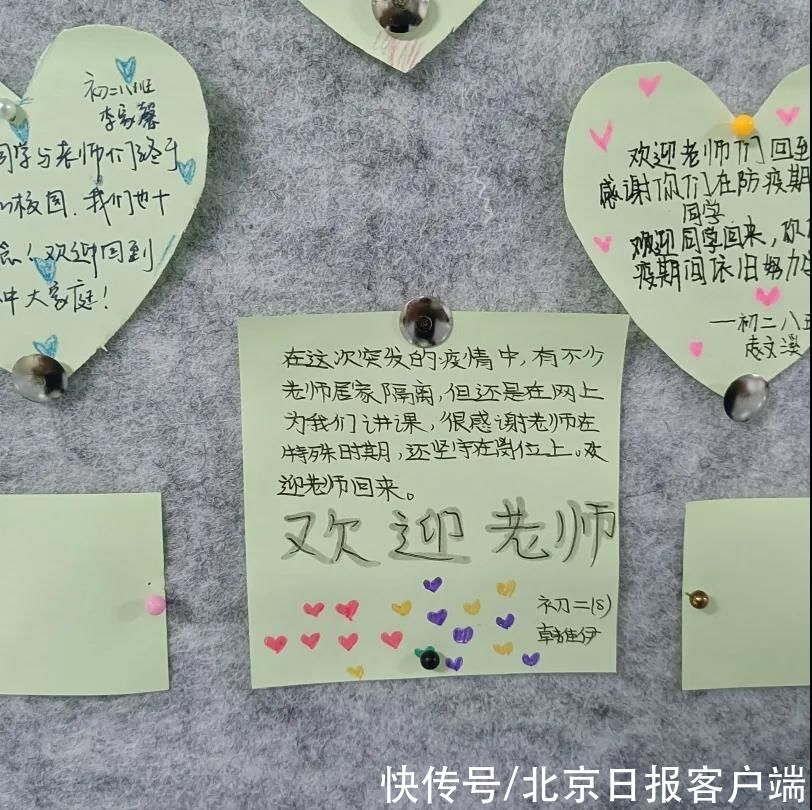 初二八班
李家馨
同学与老师们终于
校园.我们也十
念!欢迎回到
大家庭!
欢迎老师们回到
感谢你们在防疫期
同学
欢迎同学回来,欢
疫期间依旧努力
—初二八
在这次突发的疫情中,有不少
老师居家隔离,但还是在网上
为我们讲课,很感谢老师在
特殊时期,还坚守在岗位上。欢
迎老师回来。
欢迎老师
初二(8)
韩雅伊
快传号/北京日报客户端